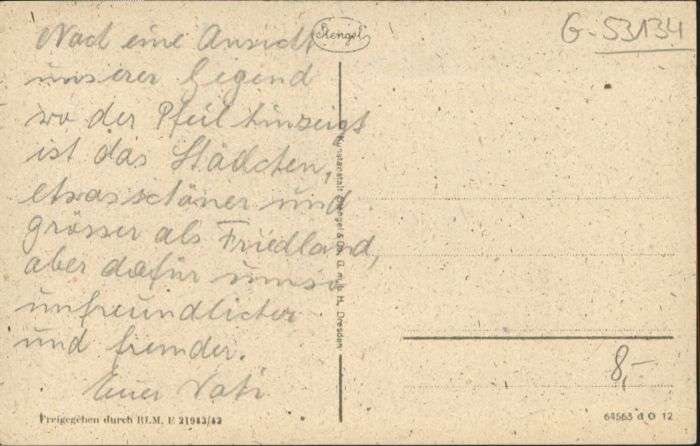 Noch eine Ansicht
unserer Gegend
wo der Pfeil hinzeigt
ist das Städchen,
etwas schöner und
grösser als Friedland,
aber dafür umso
unfreundlicher
und fremder.
Euer Vati
Stengel
G-53134
Kunstanstalt Stengel & Co. G. m. b. H. Dresden
8,-
Freigegeben durch RLM. E 21943/42
64563 d O 12